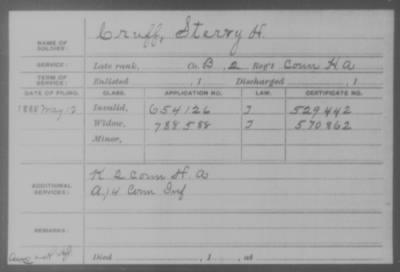 NAME OF SOLDIER: Cruff, Sterry H.
SERVICE: Late rank, Co. B, 2 Reg't Conn H.A
TERM OF SERVICE: Enlisted , 1 Discharged , 1
DATE OF FILING. CLASS. APPLICATION NO. LAW. CERTIFICATE NO.
1888 May 12 Invalid, 654126 J 529442
Widow, 788588 J 570862
Minor,
ADDITIONAL SERVICES: K 2 Conn H.A
A, 14 Conn Inf
REMARKS:
Died , 1 , at